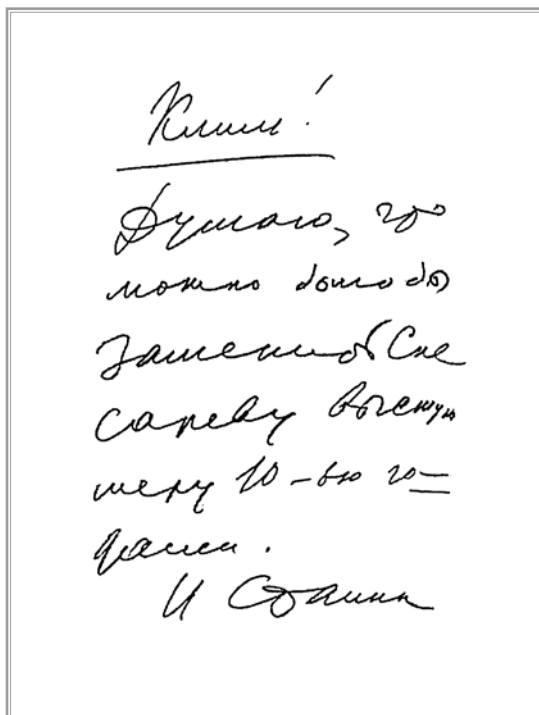 Клим!
Думаю, что
можно было бы
заменить Сле
сареву высшую
меру 10-ью го-
дами.
И Сталин